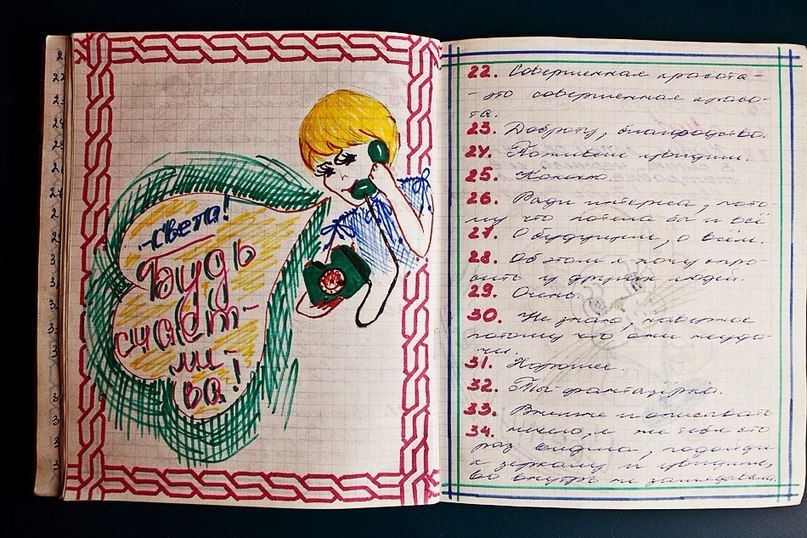 -Света!
Будь
счаст-
ли-
ва!
22. Совершенная красота -
- это совершенная красо-
та.
23. Доброту, благородство.
24. Поживём увидим.
25. Конечно.
26. Ради интереса, пото-
му что и всё
27. О будущем, о всём.
28. Об этом я хочу спро-
сить у других людей.
29. Очень.
30. Не знаю, наверное
потому что они
31. Хорошее.
32. Ты фантазёрка.
33. Внешне и описывать
34. нечего, я же тебя сто
раз видела, подойди
к зеркалу и увидишь,
во внутрь не